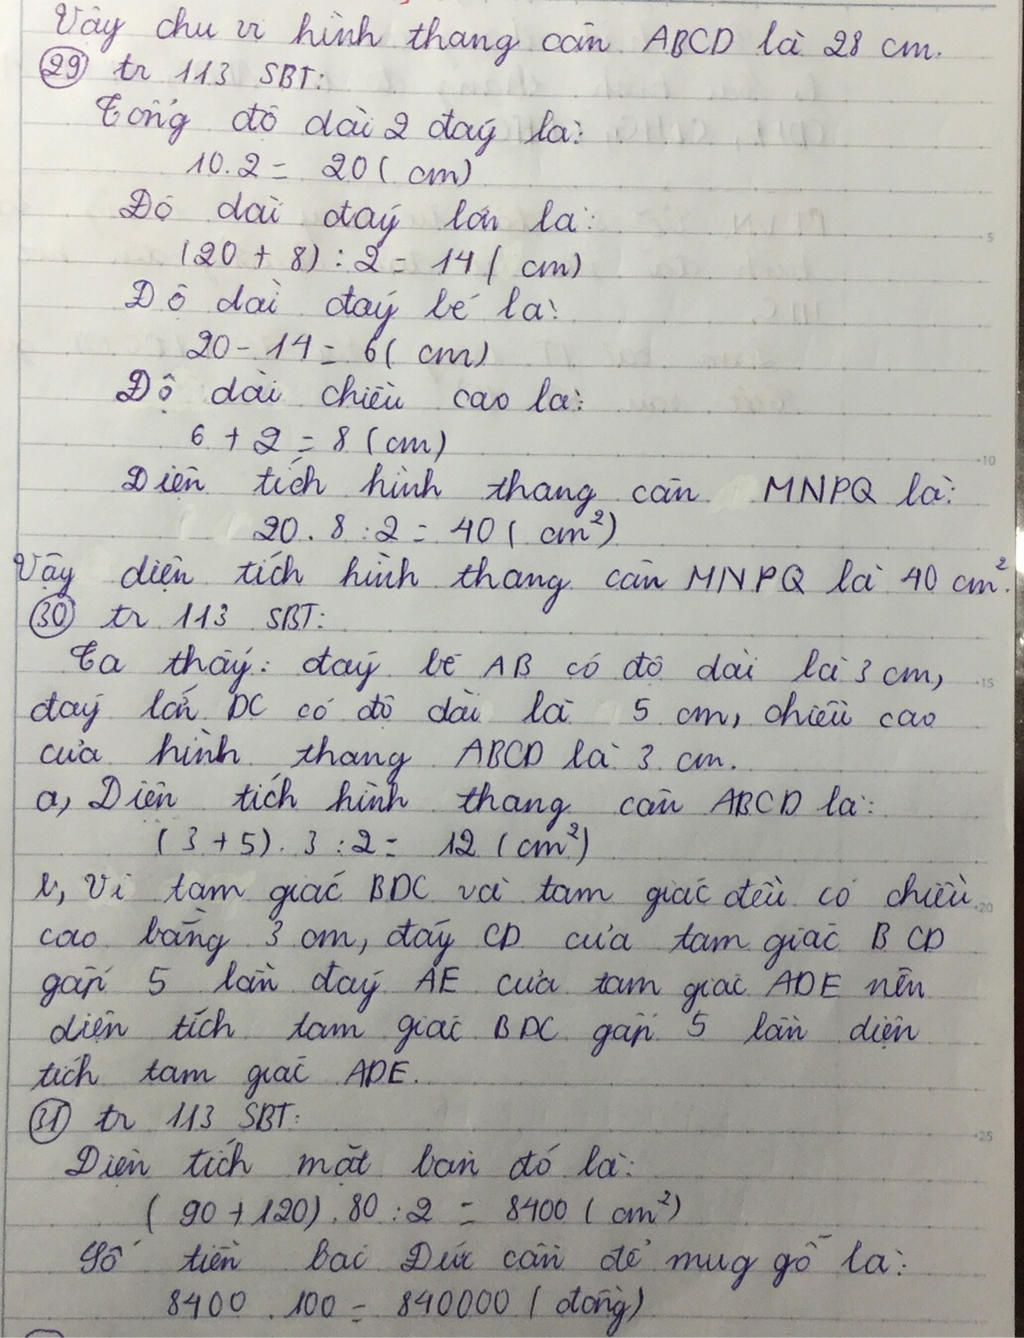 Vậy chu vi hình thang cân ABCD là 28 cm.
29 tr 113 SBT:
Tổng độ dài 2 đáy là:
10.2 = 20 ( cm)
Độ dài đáy lớn là:
(20 + 8) : 2 = 14 ( cm)
Độ dài đáy bé là:
20 - 14 = 6 ( cm)
Độ dài chiều cao là:
6 + 2 = 8 (cm)
Diện tích hình thang cân MNPQ là:
20 . 8 : 2 = 40 ( cm²)
Vậy diện tích hình thang cân MNPQ là 40 cm².
30 tr 113 SBT:
Ta thấy: đáy bé AB có độ dài là 3 cm,
đáy lớn DC có độ dài là 5 cm, chiều cao
của hình thang ABCD là 3 cm.
a, Diện tích hình thang cân ABCD là:
(3 + 5) . 3 : 2 = 12 (cm²)
b, Vì tam giác BDC và tam giác đều có chiều
cao bằng 3 cm, đáy CD của tam giác BCD
gấp 5 lần đáy AE của tam giác ADE nên
diện tích tam giác BDC gấp 5 lần diện
tích tam giác ADE.
31 tr 113 SBT:
Diện tích mặt bàn đó là:
( 90 + 120) . 80 : 2 = 8400 ( cm²)
Số tiền bác Đức cần để mug gỗ là:
8400 . 100 = 840000 ( đồng)